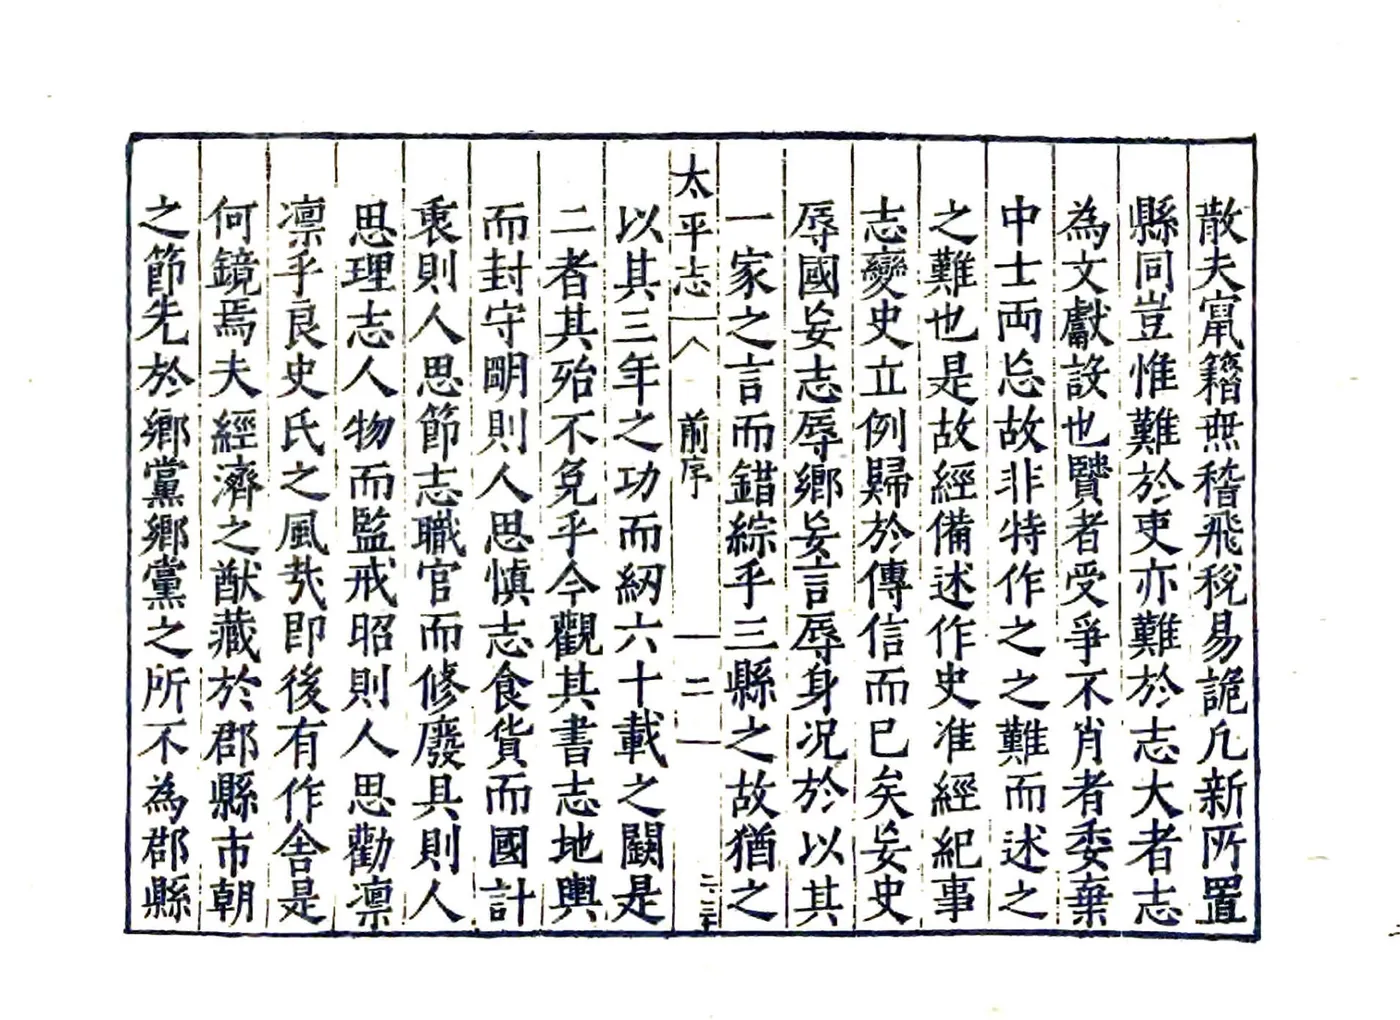 散夫竄籍無稽飛稅易詭凡新所置
縣同豈惟難於吏亦難於志大者志
為文獻設也贒者受爭不肖者委棄
中士両忌故非特作之之難而述之
之難也是故經備述作史准經紀事
志變史立例歸於傳信而已矣妄史
辱國妄志辱鄉妄言辱身况於以其
一家之言而錯綜乎三縣之故猶之
太平志 八 前序 二
以其三年之功而紉六十載之闕是
二者其殆不免乎今觀其書志地輿
而封守明則人思慎志食貨而國計
衷則人思節志職官而修廢具則人
思理志人物而監戒昭則人思勸凛
凛乎良史氏之風㢤即後有作舍是
何鏡焉夫經濟之猷藏於郡縣市朝
之節先於鄉黨鄉黨之所不為郡縣